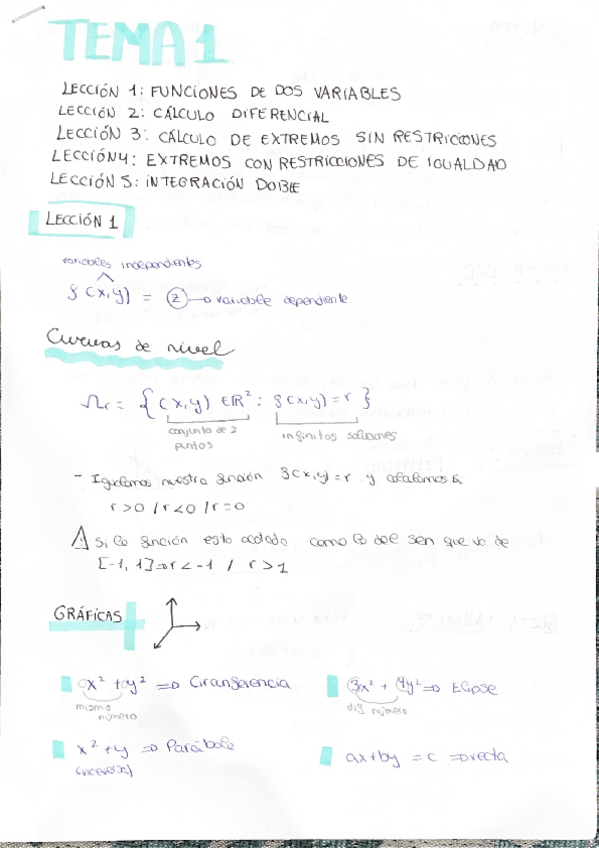 TEMA 1
LECCIÓN 1: FUNCIONES DE DOS VARIABLES
LECCIÓN 2: CÁLCULO DIFERENCIAL
LECCIÓN 3: CÁLCULO DE EXTREMOS SIN RESTRICCIONES
LECCIÓN 4: EXTREMOS CON RESTRICCIONES DE IGUALDAD
LECCIÓN 5: INTEGRACIÓN DOBLE
LECCIÓN 1
variables independientes
f(x,y) = z → variable dependiente
Curvas de nivel
Ωr = { (x,y) ∈ ℝ² : f(x,y) = r }
conjunto de 2 puntos
infinitas soluciones
- Igualamos nuestra función f(x,y) = r y
r>0 / r<0 / r=0
⚠ si la función esta acotada como la del sen que va de
[-1, 1] ⇒ r < -1 / r > 1
GRÁFICAS
ax² + ay² ⇒ Circunferencia
mismo número
3x² + 4y² ⇒ Elipse
dif número
x² + y ⇒ Parábola
(viceversa)
ax + by = c ⇒ recta